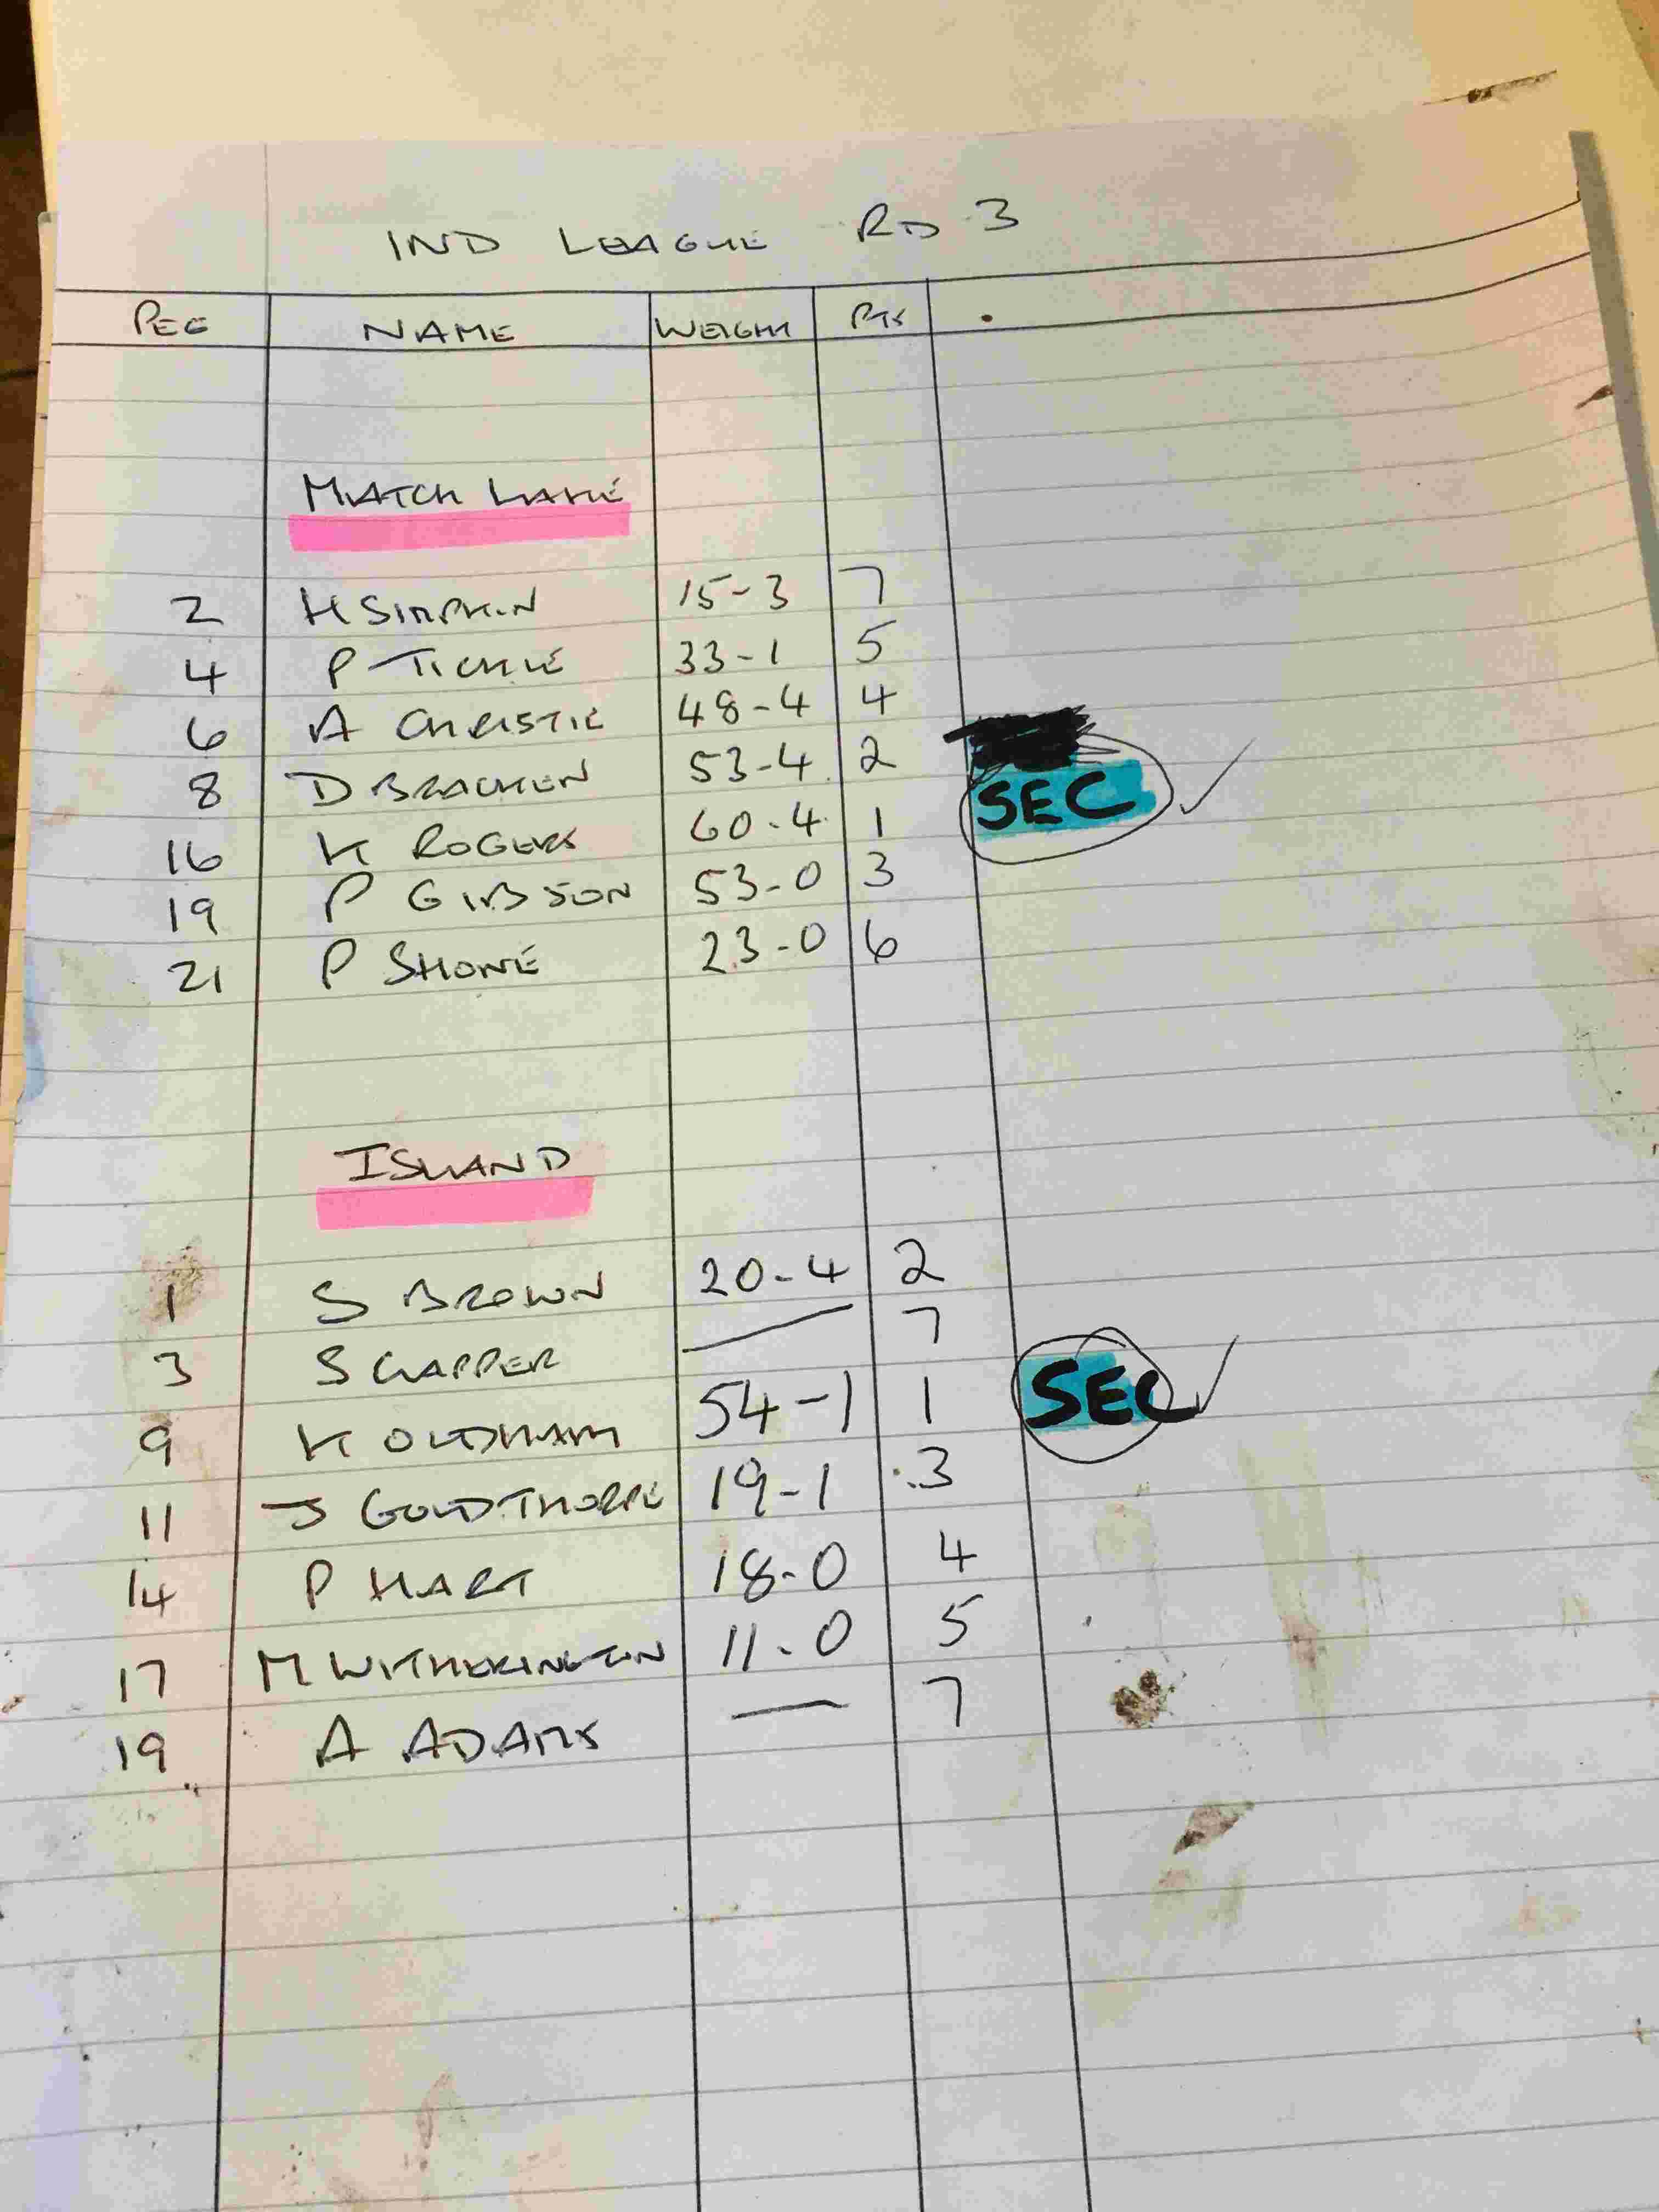 IND LEAGUE RD 3
PEG NAME WEIGHT PTS
MATCH LAKE
2 H SIMPKIN 15-3 7
4 P TICKLE 33-1 5
6 A CHRISTIE 48-4 4
8 D BRACKEN 53-4 2
16 K ROGERS 60-4 1 SEC ✓
19 P GIBSON 53-0 3
21 P SHONE 23-0 6
ISLAND
1 S BROWN 20-4 2
3 S CLAPPER — 7
9 K OLDHAM 54-1 1 SEC ✓
11 J GOLDTHORPE 19-1 3
14 P HART 18-0 4
17 M WITHERINGTON 11-0 5
19 A ADAMS — 7